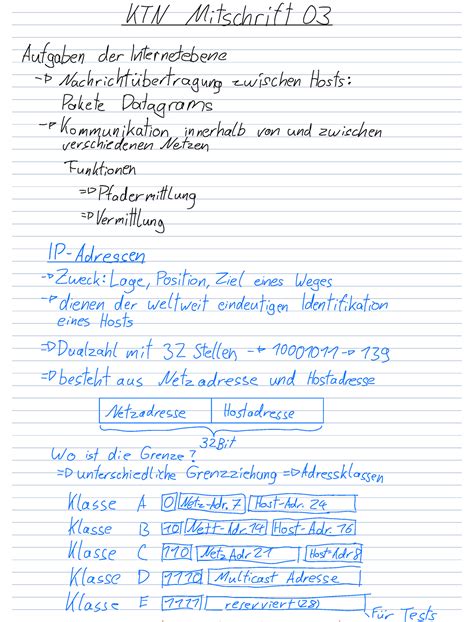 KTN Mitschrift 03
Aufgaben der Internetebene
→ Nachrichtübertragung zwischen Hosts:
Pakete Datagrams
→ Kommunikation innerhalb von und zwischen
verschiedenen Netzen
Funktionen
⇒ Pfadermittlung
⇒ Vermittlung
IP-Adressen
→ Zweck: Lage, Position, Ziel eines Weges
→ dienen der weltweit eindeutigen Identifikation
eines Hosts
⇒ Dualzahl mit 32 Stellen → 10001011 → 139
⇒ besteht aus Netzadresse und Hostadresse
Netzadresse Hostadresse
32Bit
Wo ist die Grenze?
⇒ unterschiedliche Grenzziehung ⇒ Adressklassen
Klasse A 0 Netz-Adr. 7 Host-Adr. 24
Klasse B 10 Nett-Adr. 14 Host-Adr. 16
Klasse C 110 Netz Adr 21 Host Adr 8
Klasse D 1110 Multicast Adresse
Klasse E 1111 reserviert (28)
Für Tests